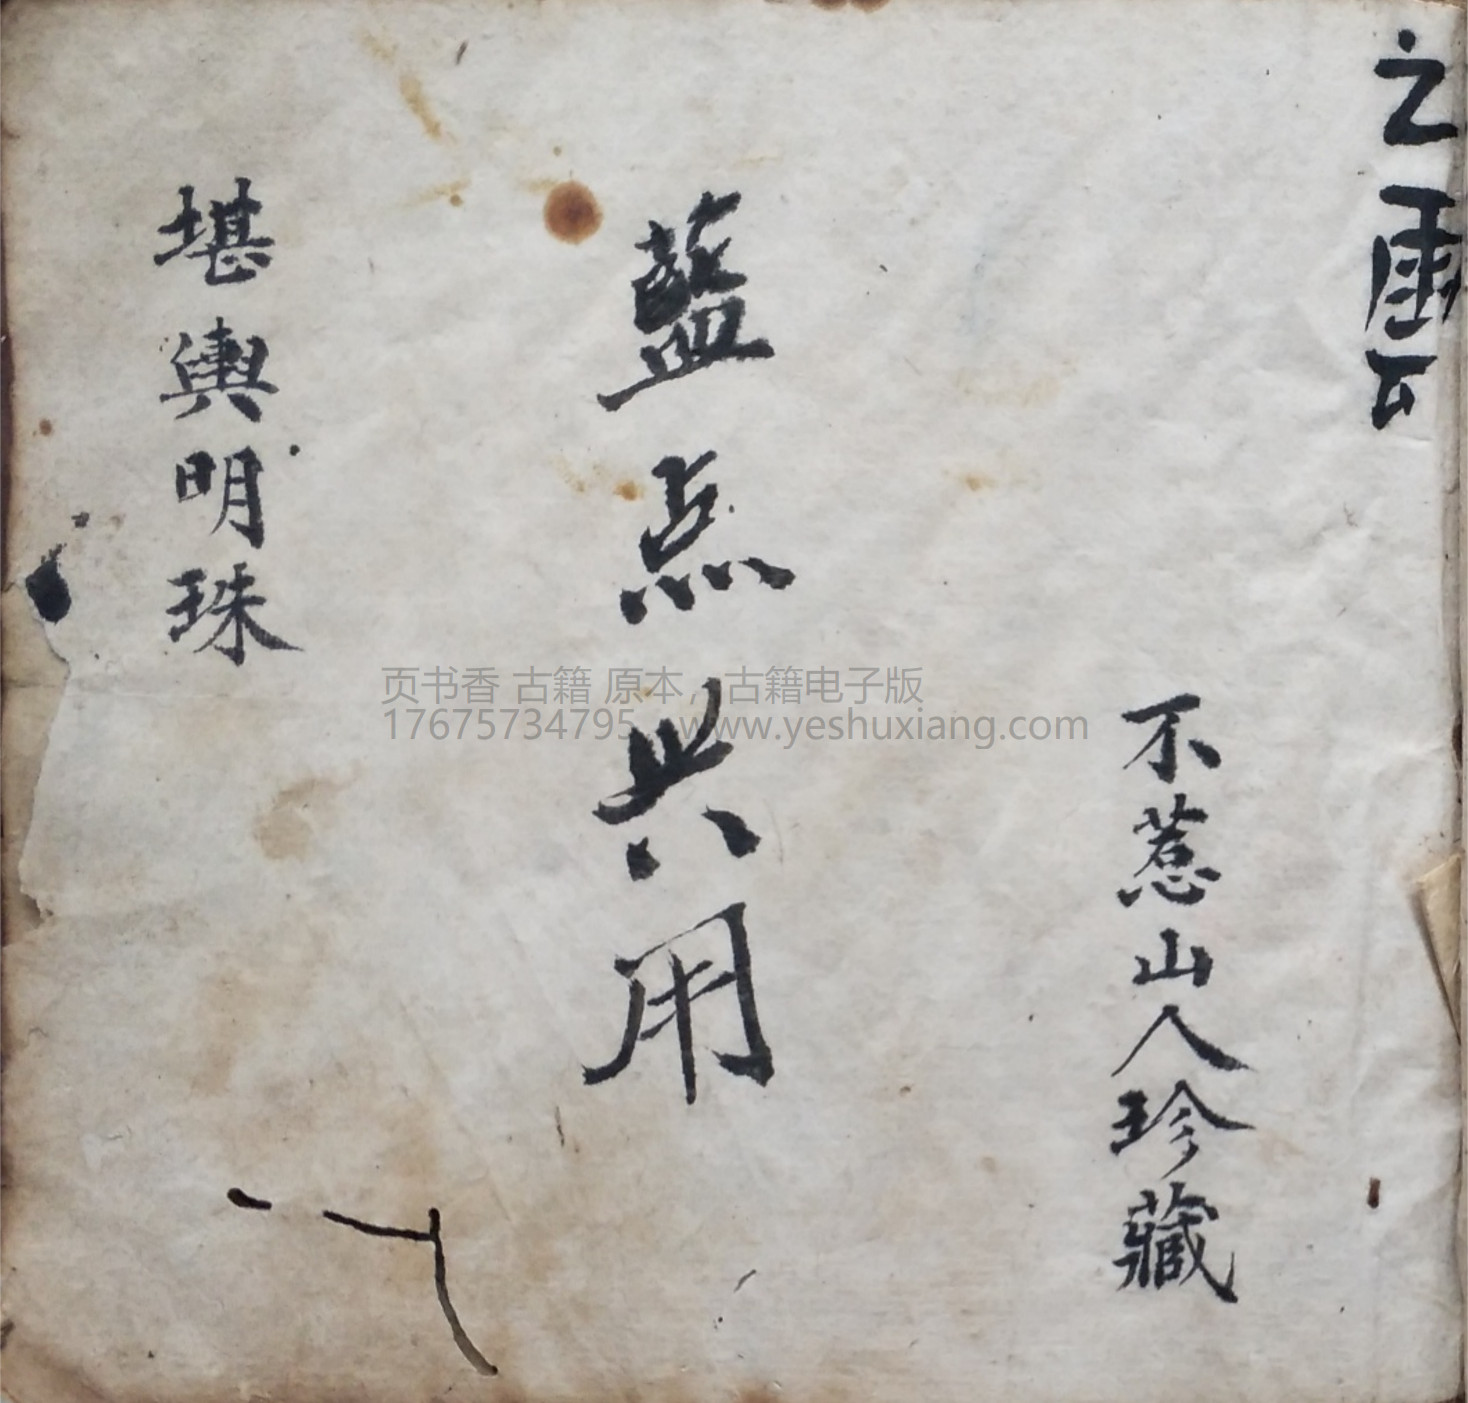 不惹山人珍藏
藍点共用
堪輿明珠
页书香 古籍 原本，古籍电子版
17675734795 www.yeshuxiang.com